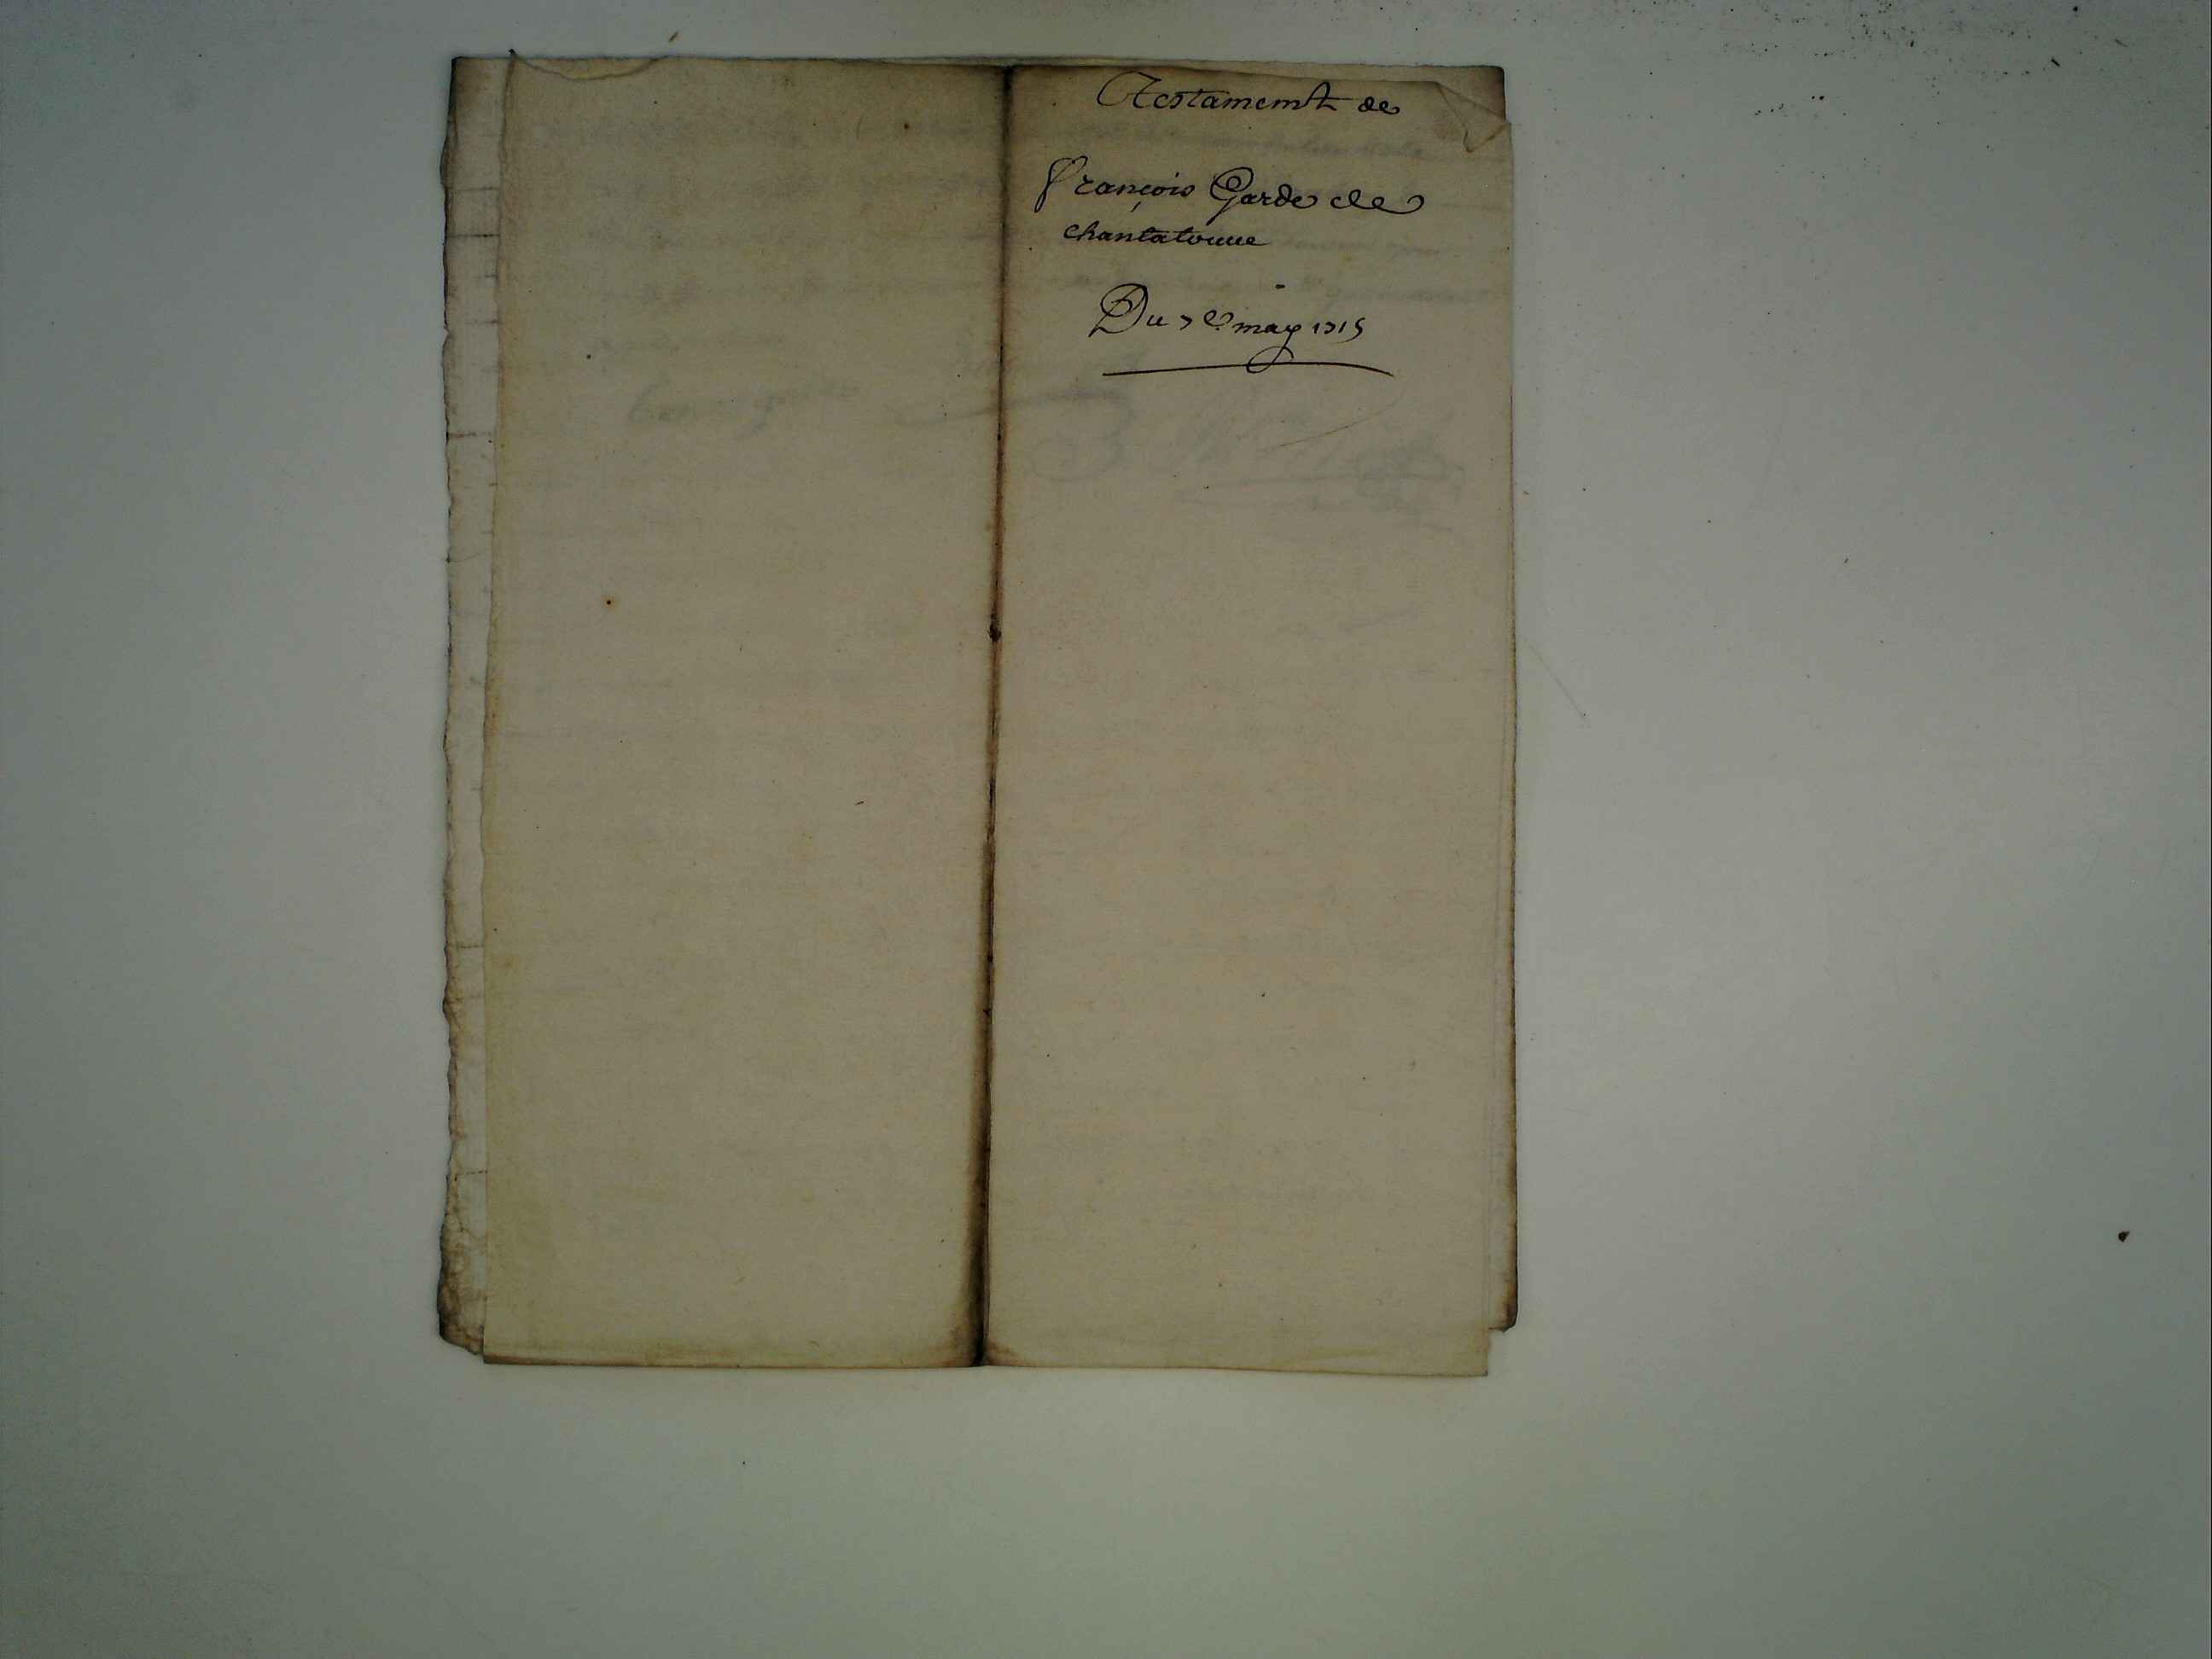 Testament de
françois Garde de
chantatouue
Du 7e may 1715